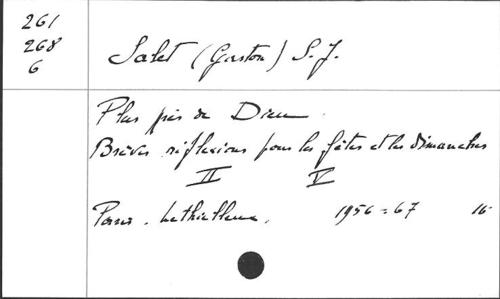 261
268
6
Salet (Gaston) S.J.
Plus près de Dieu
Brèves réflexions pour les fêtes et les dimanches
II V
Paris. Lethielleux. 1956-67 16